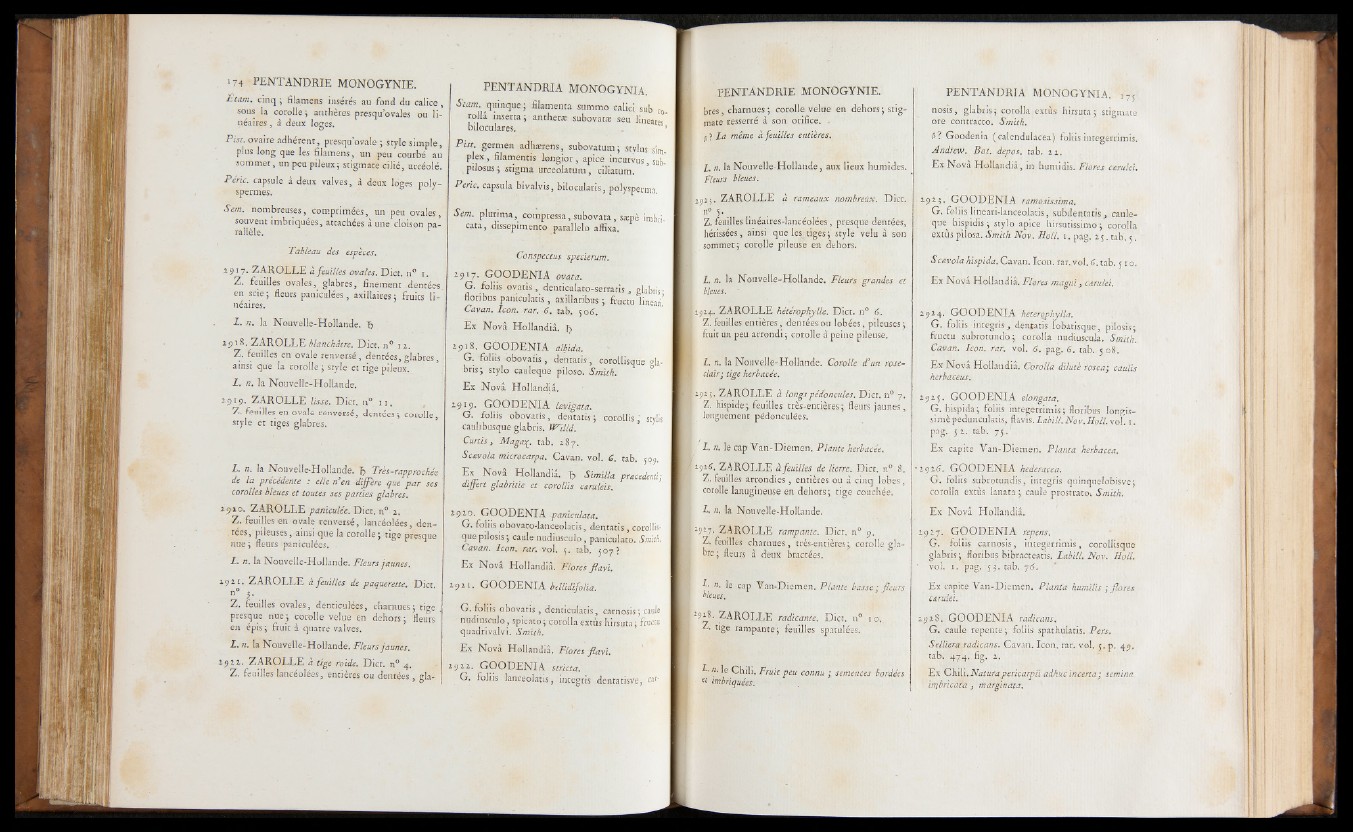 174 PENTANDRIE MONOGYNIE.
Étam. cinq ; filamens insérés au fond du calice,
sous la corolle ; anthères presqu'ovales ou li-
néaires, à deux loges.
Pist. ovaire adhérent, presqu'ovale ; style simple,
plus long que les filamens, un peu courbé au
sommet, un peu pileux ; stigmate cilié, urcéolé.
Péric. capsule à deux valves, à deux loges poly-
spermes.
Sem. nombreuses, comprimées, un peu ovales,
souvent imbriquées, attachées à une cloison pa-
rallèle.
Tableau des espèces.
2917. ZAROLLE à feuilles ovales. Dict. n° 1.
Z. feuilles ovales, glabres, finement dentées
en scie ; fleurs paniculées, axillaires ; fruits li-
néaires.
L. n. la Nouvelle-Hollande. ♄
2918. ZAROLLE blanchâtre. Dict. n° 12.
Z. feuilles en ovale renversé, dentées, glabres,
ainsi que la corolle ; style et tige pileux.
L. n. la Nouvelle-Hollande.
2919. ZAROLLE lisse. Dict. n° 11.
Z. feuilles en ovale renversé, dentées ; corolle,
style et tiges glabres.
L. n. la Nouvelle-Hollande. ♄ Très-rapprochée
de la précédente : elle n'en diffère que par ses
corolles bleues et toutes ses parties glabres.
2920. ZAROLLE paniculée. Dict. n° 2.
Z. feuilles en ovale renversé, lancéolées, den-
tées, pileuses, ainsi que la corolle ; tige presque
nue ; fleurs paniculées.
L. n. la Nouvelle-Hollande. Fleurs jaunes.
2921. ZAROLLE à feuilles de paquerette. Dict.
n° 5.
Z. feuilles ovales, denticulées, charnues ; tige
presque nue ; corolle velue en dehors ; fleurs
en épis ; fruit à quatre valves.
L. n. la Nouvelle-Hollande. Fleurs jaunes.
2922. ZAROLLE à tige roide. Dict. n° 4.
Z. feuilles lancéolées, entières ou dentées, gla-
PENTANDRIA MONOGYNIA.
Stam. quinque ; filamenta summo calici sub co-
rollâ inserta ; antheræ subovatæ seu lineares,
biloculares.
Pist. germen adhærens, subovatum ; stylus sim-
plex, filamentis longior, apice incurvus, sub-
pilosus ; stigma urceolatum, ciliatum.
Peric. capsula bivalvis, bilocularis, polysperma.
Sem. plurima, compressa, subovata, sæpè imbri-
cata, dissepimento parallelo affixa.
Conspectus specierum.
2917. GOODENIA ovata.
G. foliis ovatis, denticulato-serratis, glabris ;
floribus paniculatis, axillaribus ; fructu lineari.
Cavan. Icon. rar. 6. tab. 506.
Ex Novâ Hollandiâ. ♄
2918. GOODENIA albida.
G. foliis obovatis, dentatis, corollisque gla-
bris ; stylo cauleque piloso. Smith.
Ex Novâ Hollandiâ.
2919. GOODENIA levigata.
G. foliis obovatis, dentatis ; corollis, stylis
caulibusque glabris. Willd.
Curtis, Magaz. tab. 287.
Scævola microcarpa. Cavan. vol. 6. tab. 509.
Ex Novâ Hollandiâ. ♄ Similla præcedenti ;
differt glabritie et corollis cæruleis.
2920. GOODENIA paniculata.
G. foliis obovato-lanceolatis, dentatis, corollis-
que pilosis ; caule nudiusculo, paniculato. Smith.
Cavan. Icon. rar. vol. 5. tab. 507 ?
Ex Novâ Hollandiâ. Flores flavi.
2921. GOODENIA bellidifolia.
G. foliis obovatis, denticulatis, carnosis ; caule
nudiusculo, spicato ; corolla extùs hirsuta ; fructu
quadrivalvi. Smith.
Ex Novâ Hollandiâ. Flores flavi.
2922. GOODENIA stricta.
G. foliis lanceolatis, integris dentatisve, car-
PENTANDRIE MONOGYNIE.
bres, charnues ; corolle velue en dehors ; stig-
mate resserré à son orifice.
β? La même à feuilles entières.
L. n. la Nouvelle-Hollande, aux lieux humides.
Fleurs bleues.
2923. ZAROLLE à rameaux nombreux. Dict.
n° 5.
Z. feuilles linéaires-lancéolées, presque dentées,
hérissées, ainsi que les tiges ; style velu à son
sommet ; corolle pileuse en dehors.
L. n. la Nouvelle-Hollande. Fleurs grandes et
bleues.
2924. ZAROLLE hétérophylle. Dict. n° 6.
Z. feuilles entières, dentées ou lobées, pileuses ;
fruit un peu arrondi ; corolle à peine pileuse.
L. n. la Nouvelle-Hollande. Corolle d'un rose-
clair ; tige herbacée.
2925. ZAROLLE à longs pédoncules. Dict. n° 7.
Z. hispide ; feuilles très-entières ; fleurs jaunes,
longuement pédonculées.
L. n. le cap Van-Diemen. Plante herbacée.
2926. ZAROLLE à feuilles de lierre. Dict. n° 8.
Z. feuilles arrondies, entières ou à cinq lobes,
corolle lanugineuse en dehors ; tige couchée.
L. n. la Nouvelle-Hollande.
2927. ZAROLLE rampante. Dict. n° 9.
Z. feuilles charnues, très-entières ; corolle gla-
bre ; fleurs à deux bractées.
L. n. le cap Van-Diemen. Plante basse ; fleurs
bleues.
2928. ZAROLLE radicante. Dict. n° 10.
Z. tige rampante ; feuilles spatulées.
L. n. le Chili. Fruit peu connu ; semences bordées
et imbriquées.
PENTANDRIA MONOGYNIA. 175
nosis, glabris ; corolla extùs hirsuta ; stigmate
ore contracto. Smith.
β? Goodenia (calendulacea) foliis integerrimis.
Andrew. Bot. depos. tab. 22.
Ex Novâ Hollandiâ, in humidis. Flores cærulei.
2923. GOODENIA ramosissima.
G. foliis lineari-lanceolatis, subdentatis, caule-
que hispidis ; stylo apice hirsutissimo ; corolla
extùs pilosa. Smith Nov. Holl. 1. pag. 15. tab. 5.
Scævola hispida. Cavan. Icon. rar. vol. 6. tab. 510.
Ex Novâ Hollandiâ. Flores magni, cærulei.
2924. GOODENIA heterophylla.
G. foliis integris, dentatis lobatisque, pilosis ;
fructu subrotundo ; corolla nudiuscula. Smith.
Cavan. Icon. rar. vol. 6. pag. 6. tab. 508.
Ex Novâ Hollandiâ. Corolla dilutè rosea ; caulis
herbaceus.
2925. GOODENIA elongata.
G. hispida ; foliis integerrimis ; floribus longis-
simè pedunculatis, flavis. Labill. Nov. Holl. vol. 1.
pag. 52. tab. 75.
Ex capite Van-Diemen. Planta herbacea.
2926. GOODENIA hederacea.
G. foliis subrotundis, integris quinquelobisve ;
corolla extùs lanata ; caule prostrato. Smith.
Ex Novâ Hollandiâ.
2927. GOODENIA repens.
G. foliis carnosis, integerrimis, corollisque
glabris ; floribus bibracteatis. Labill. Nov. Holl.
vol. 1. pag. 53. tab. 76.
Ex capite Van-Diemen. Planta humilis ; flores
cærulei.
2928. GOODENIA radicans.
G. caule repente ; foliis spathulatis. Pers.
Selliera radicans. Cavan. Icon. rar. vol. 5. p. 49.
tab. 474. fig. 2.
Ex Chili. Natura pericarpii adhuc incerta ; semina
imbricata, marginata.